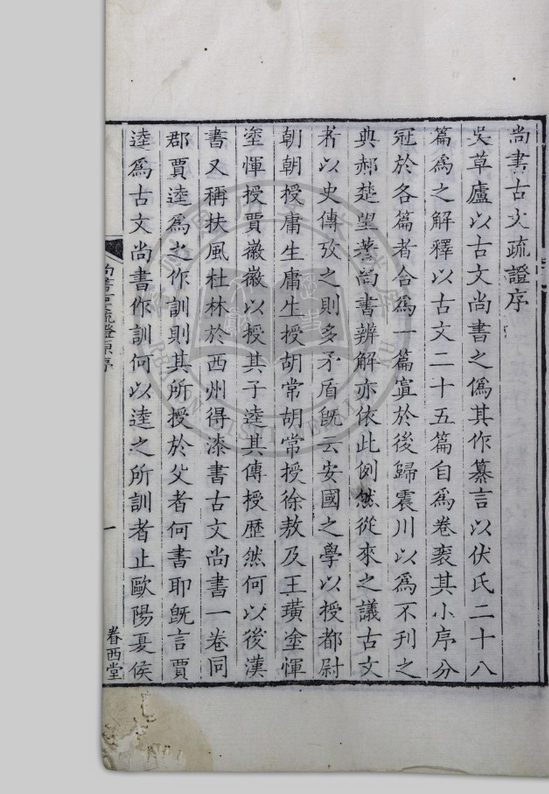 尚書古文疏證序
吳草廬以古文尚書之僞其作纂言以伏氏二十八
篇爲之解釋以古文二十五篇自爲卷袠其小序分
冠於各篇者合爲一篇寘於後歸震川以爲不刊之
典郝楚望著尚書辨解亦依此例然從來之議古文
者以史傳攷之則多矛盾旣云安國之學以授都尉
朝朝授庸生庸生授胡常胡常授徐敖及王璜塗惲
塗惲授賈徽徽以授其子逵其傳授歷然何以後漢
書又稱扶風杜林於西州得漆書古文尚書一卷同
郡賈逵爲之作訓則其所授於父者何書耶旣言賈
逵爲古文尚書作訓何以逵之所訓者止歐陽夏侯
尚書古文疏證原序
一
眷西堂